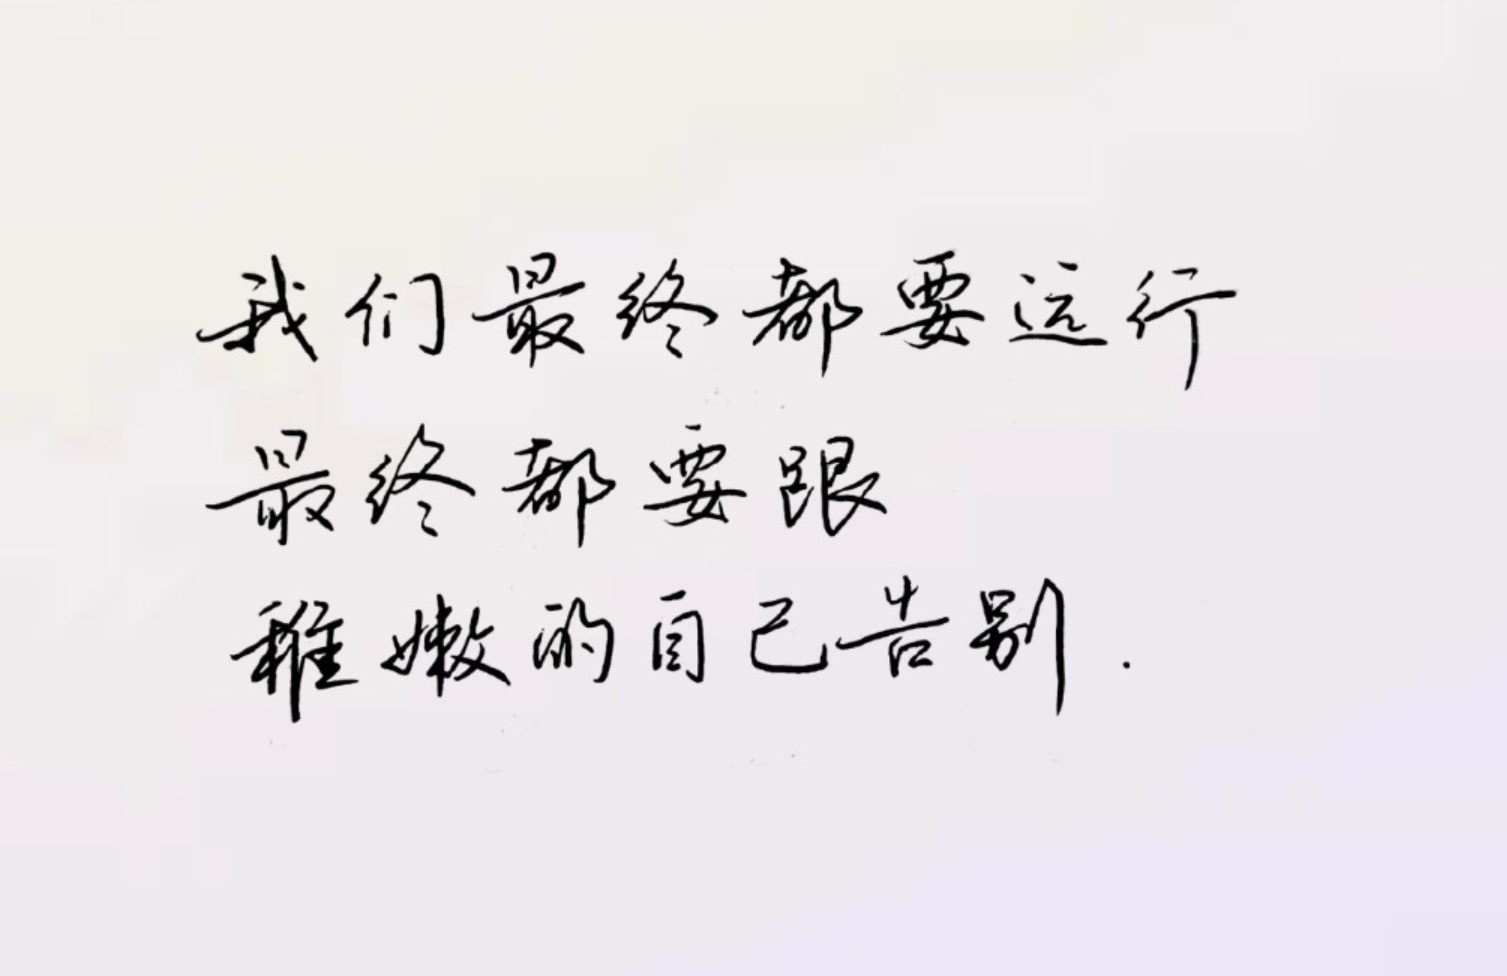 我们最终都要远行
最终都要跟
稚嫩的自己告别.